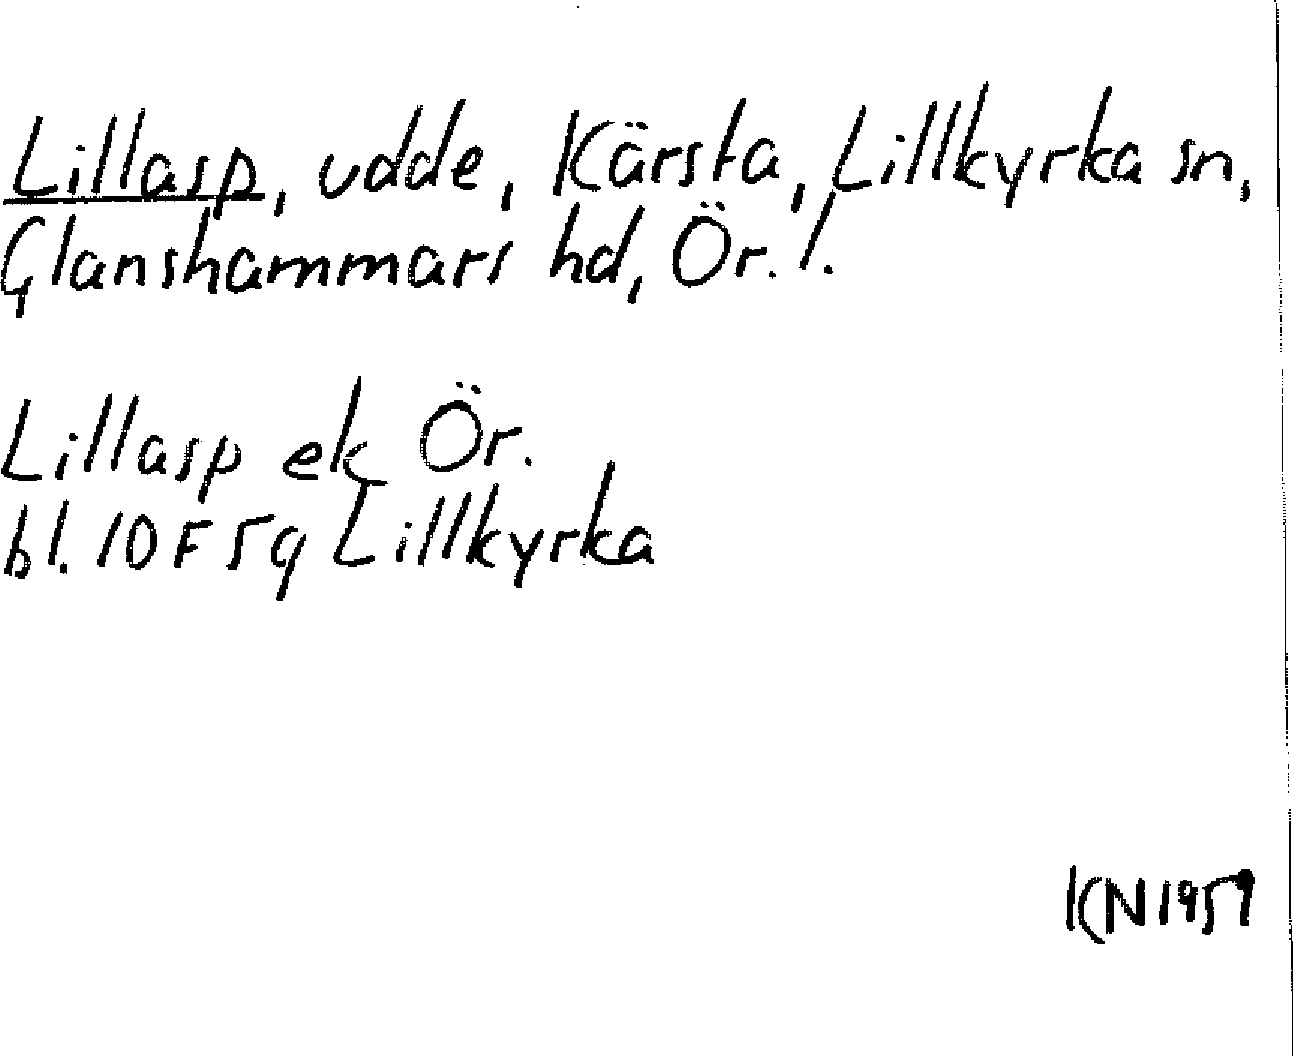 Lillasp, udde, Kärsta, Lillkyrka sn,
Glanshammars hd, Ör. l.
Lillasp ek Ör.
bl. 10F5g Lillkyrka
KN 1959